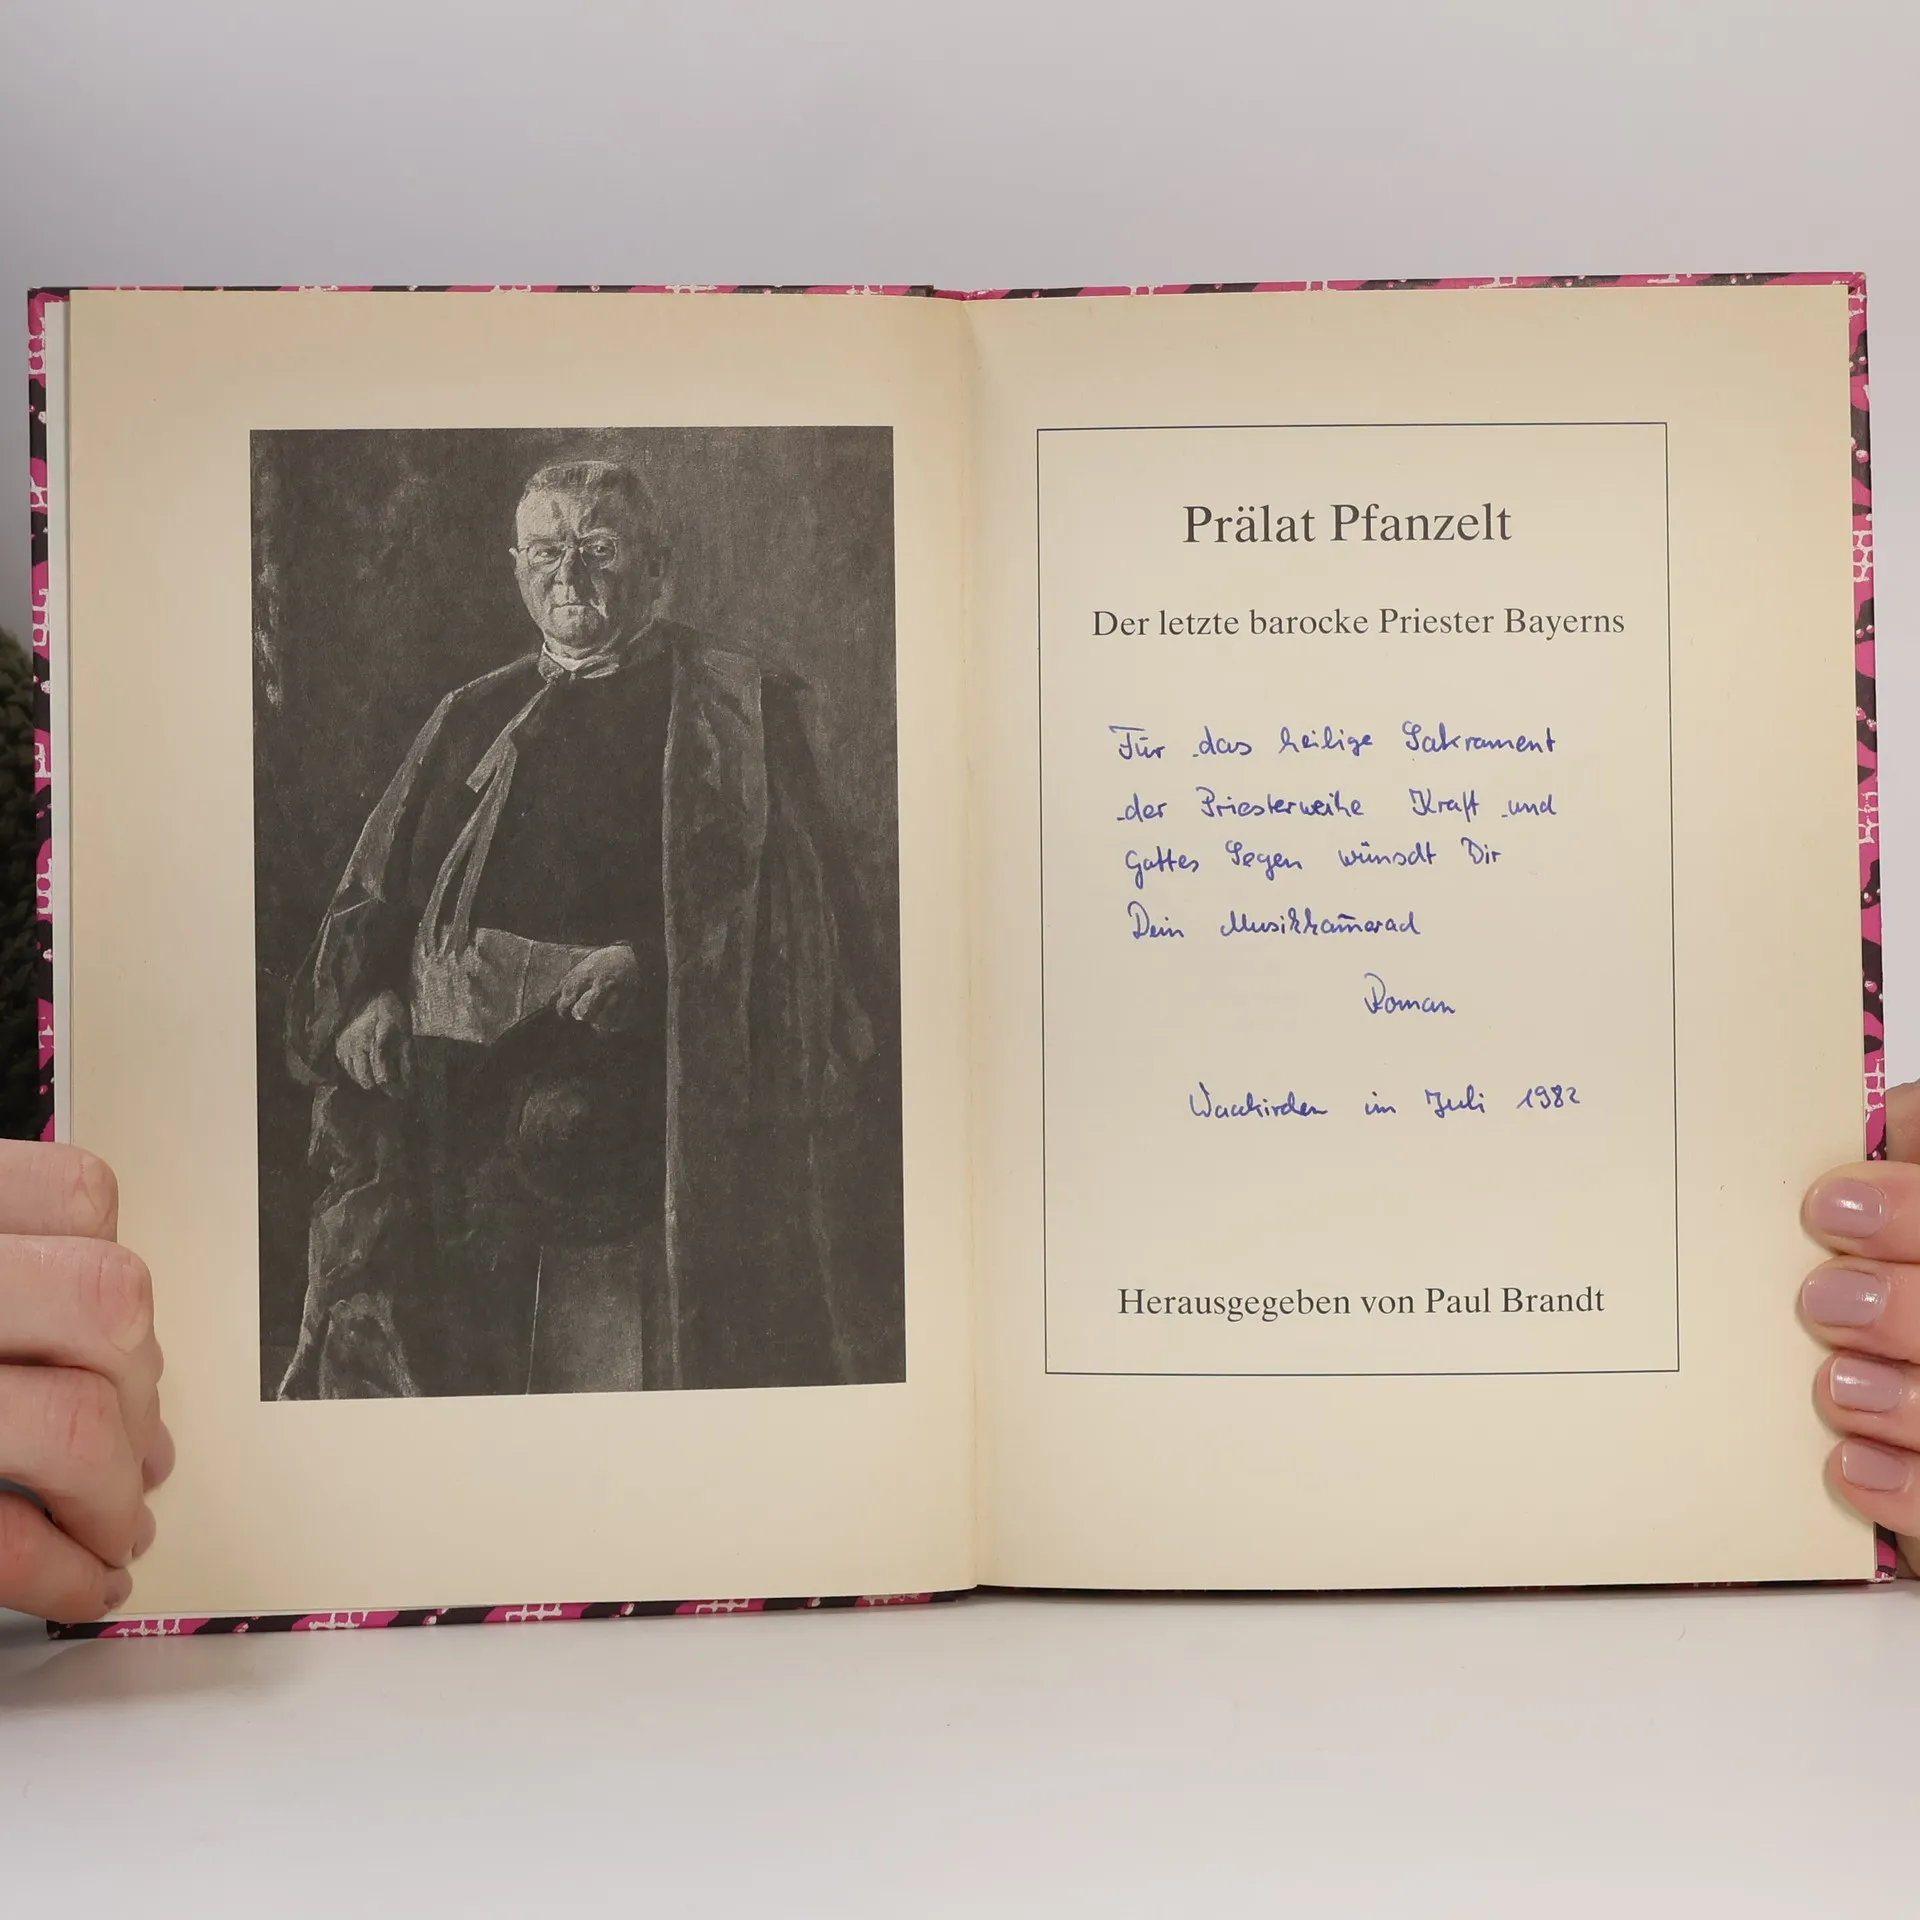 Prälat Pfanzelt
Der letzte barocke Priester Bayerns
Für das heilige Sakrament
der Priesterweihe Kraft und
Gottes Segen wünscht Dir
Dein Musikkam̄erad
Roman
Waakirchen im Juli 1982
Herausgegeben von Paul Brandt